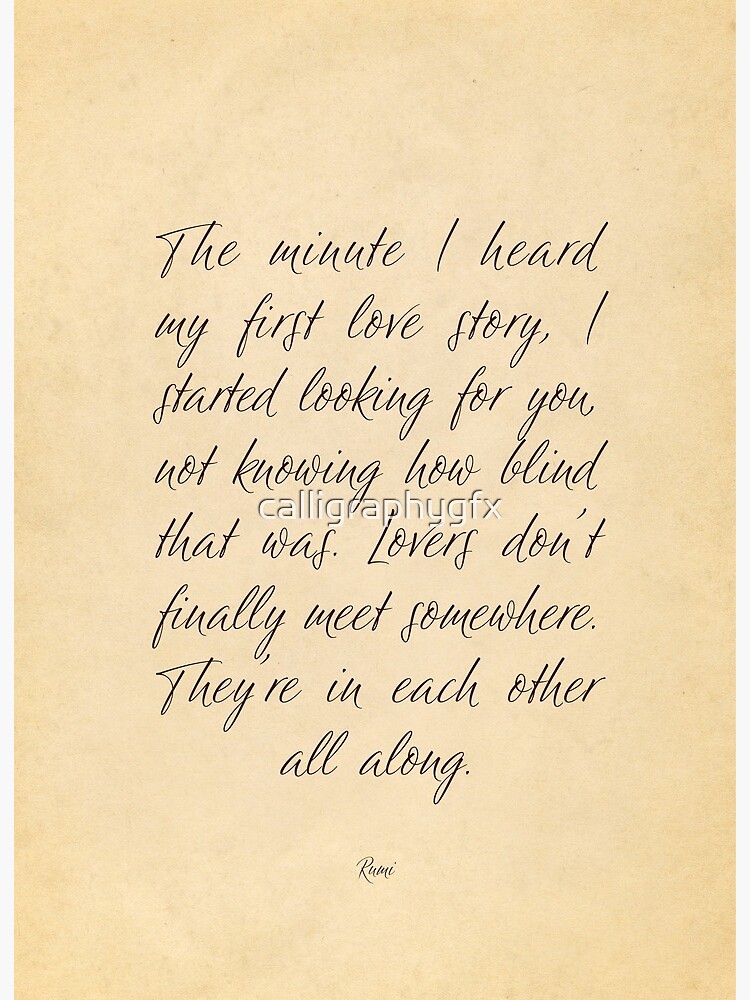 The minute I heard
my first love story, I
started looking for you,
not knowing how blind
calligraphygfx
that was. Lovers don't
finally meet somewhere.
They're in each other
all along.
Rumi